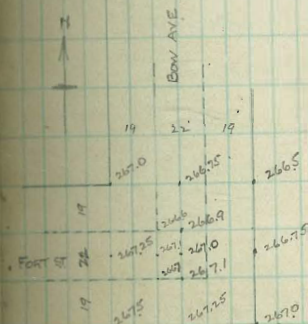 Z
BOW AVE
19 22 19
267.0 266.75 266.5
19
266.6 266.9
FORT ST. 22 267.25 267.1 267.0 266.75
267.1
19
267.5 267.25 267.0